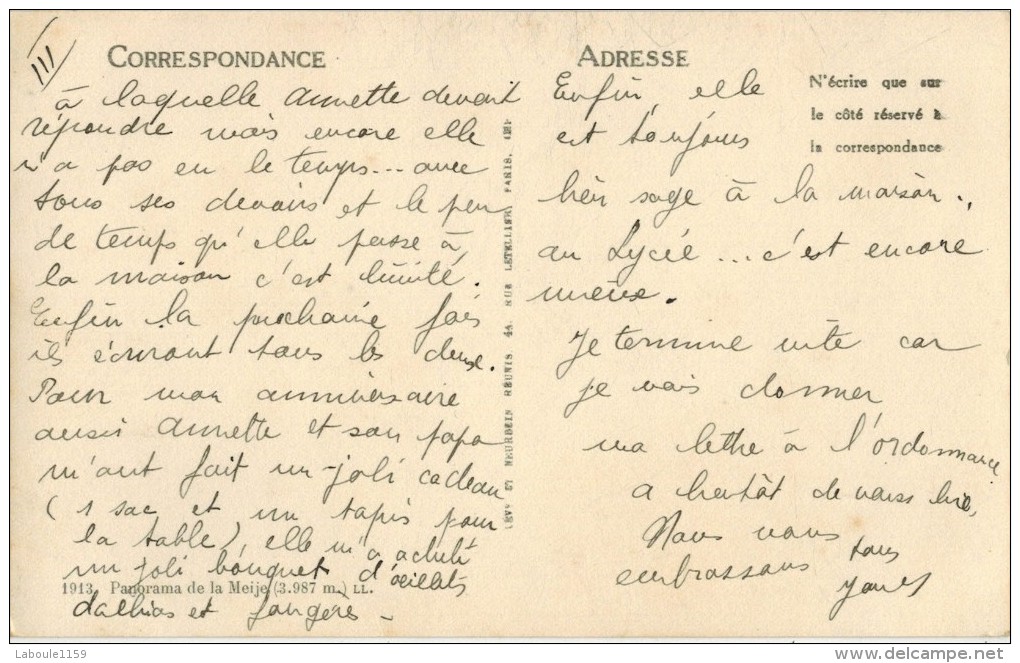 III
CORRESPONDANCE
à laquelle Annette devait
répondre mais encore elle
n'a pas eu le temps... avec
tous ses devoirs et le peu
de temps qu'elle passe à
la maison c'est limité.
Enfin la prochaine fois
ils écriront tous les deux.
Pour mon anniversaire
aussi Annette et son papa
m'ont fait un joli cadeau
(1 sac et un tapis pour
la table), elle m'a acheté
un joli bouquet d'œillets
1913. Panorama de la Meije (3.987 m.) LL.
dalhias et fougères -
LEVY et NEURDEIN RÉUNIS, 44, RUE LETELLIER, PARIS.
ADRESSE
N'écrire que sur
le côté réservé à
la correspondance
Enfin, elle
est toujours
bien sage à la maison..
au Lycée... c'est encore
mieux.
Je termine vite car
je vais donner
ma lettre à l'ordonnance
a bientôt de vous lire,
Nous vous
embrassons tous